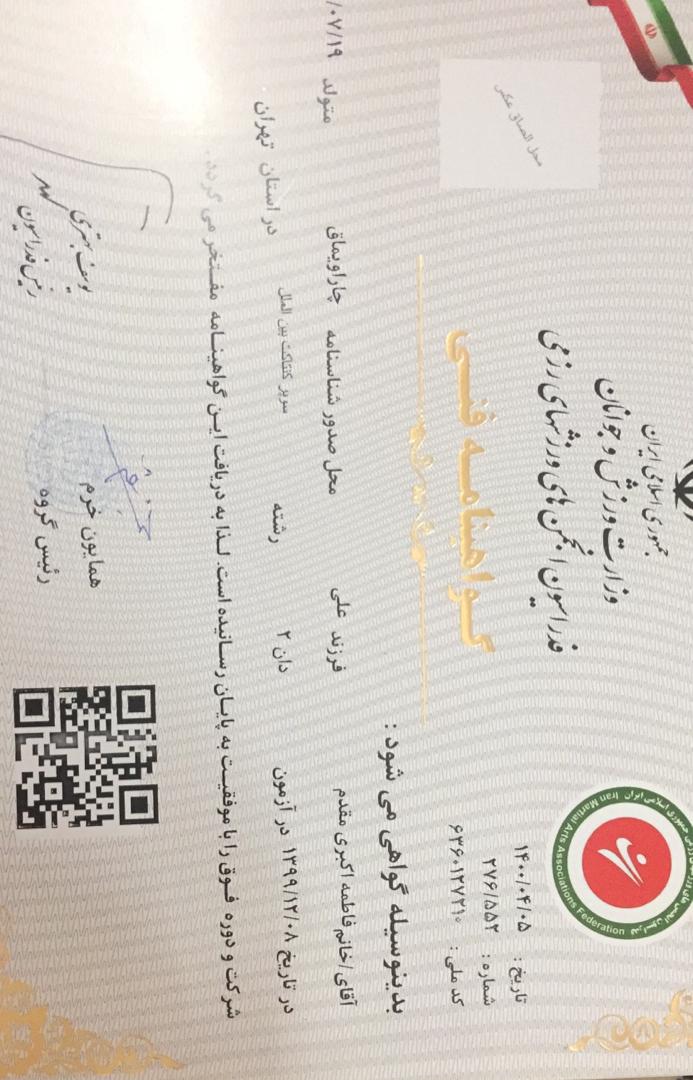 جمهوری اسلامی ایران
وزارت ورزش و جوانان
فدراسیون انجمن های ورزشهای رزمی
Iran Martial Arts Associations Federation
تاریخ : ۱۴۰۰/۰۴/۰۵
شماره : ۲۷۶/۵۵۲
کد ملی : ۶۳۶۰۱۲۷۲۱۰
محل الصاق عکس
گواهینامه فنی
بدینوسیله گواهی می شود :
آقای/خانم فاطمه اکبری مقدم فرزند علی محل صدور شناسنامه چاراویماق متولد /۰۷/۱۹
در تاریخ ۱۳۹۹/۱۲/۰۸ در آزمون دان ۲ رشته سوپر کنتاکت بین الملل در استان تهران .
شرکت و دوره فوق را با موفقیت به پایان رسانیده است. لذا به دریافت این گواهینامه مفتخر می گردد .
همایون خرم
رئیس گروه
یوسف بهتری
رئیس فدراسیون